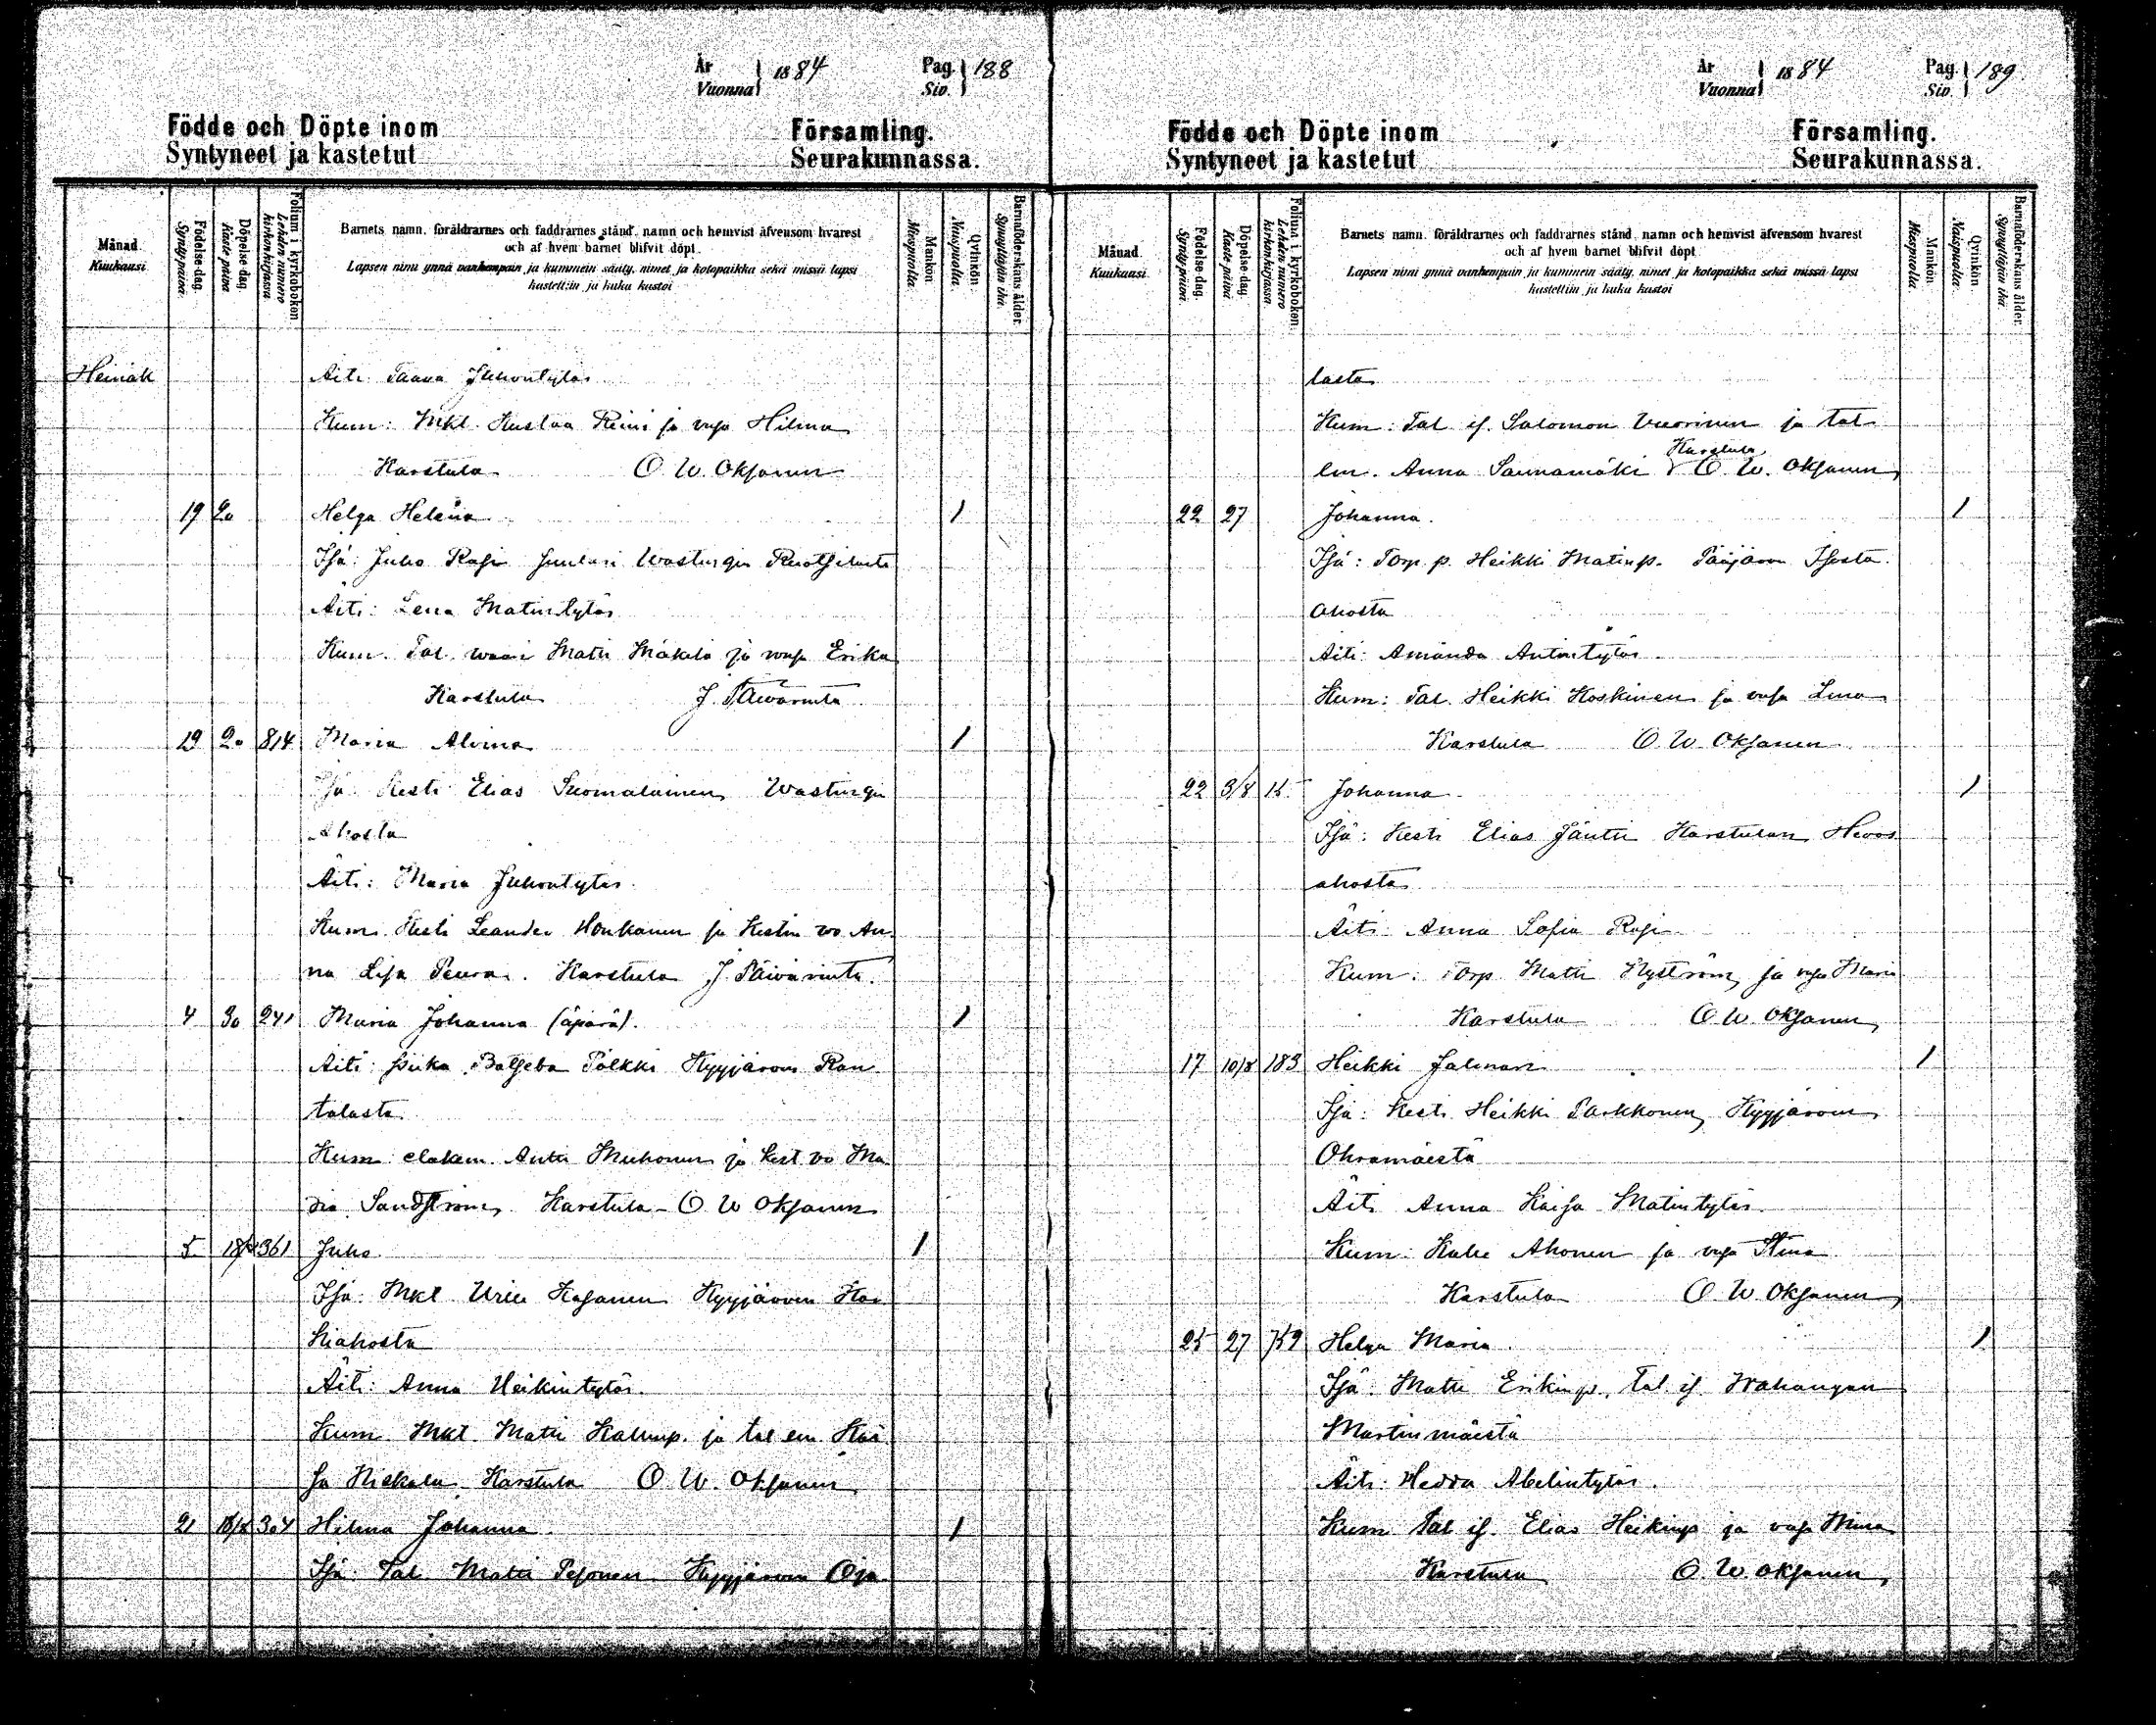 År Vuonna 1884 Pag. Siv. 188
Födde och Döpte inom Församling.
Syntyneet ja kastetut Seurakunnassa.
Månad Kuukausi
Födelse-dag. Synty-päivä.
Döpelse-dag. Kaste-päivä
Folium i kyrkoboken Lehden numero kirkonkirjassa
Barnets namn, föräldrarnes och faddrarnes stånd, namn och hemvist äfvensom hvarest och af hvem barnet blifvit döpt.
Lapsen nimi ynnä vanhempain ja kummein sääty, nimet ja kotopaikka sekä missä lapsi kastettiin ja kuka kastoi
Mankön Miespuolia.
Qvinkön Naispuolia
Barnaföderskans ålder. Synnyttäjän ikä.
Heinäk Äiti Juhontytär
Kum: Mkl. Kustaa Reini ja wsa Hilma
Karstula O. W. Oksanen
19 20 Helga Helena 1
Isä: Juho Rasi Wastingin
Äiti: Lena Matintytär
Kum. Tal. waari Matti Mäkelä ja wsa Erika
Karstula J. Päivärinta
19 20 814 Maria Alvina 1
Isä Kesti Elias Suomalainen Wastingin
Ahosta
Äiti: Maria Juhontytär.
Kum. Kesti Leander Honkanen ja Kestin vo An-
na Lisa Peura. Karstula J. Päivärinta.
4 30 241 Maria Johanna (äpärä). 1
Äiti: Piika Batseba Pölkki Kyyjärven Ran
talasta
Kum: eläkem. Antti Muhonen ja kest. vo Ma
ria Sandström, Karstula - O W Oksanen
5 361 Juho. 1
Isä: Mkl Uriel Kasanen Kyyjärven Kos
kiahosta
Äiti: Anna Heikintytär.
Kum Mkl. Matti Kallenp. ja tal em. Kai
sa Niskala Karstula O. W. Oksanen
21 304 Hilma Johanna. 1
Isä: Tal Matti Pesonen Kyyjärven Oja
År Vuonna 1884 Pag. Siv. 189
Födde och Döpte inom Församling.
Syntyneet ja kastetut Seurakunnassa.
Månad Kuukausi
Födelse-dag. Synty-päivä.
Döpelse-dag. Kaste-päivä
Folium i kyrkoboken. Lehden numero kirkonkirjassa.
Barnets namn, föräldrarnes och faddrarnes stånd, namn och hemvist äfvensom hvarest och af hvem barnet blifvit döpt.
Lapsen nimi ynnä vanhempain ja kummein sääty, nimet ja kotopaikka sekä missä lapsi kastettiin ja kuka kastoi
Mankön Miespuolia.
Qvinkön Naispuolia.
Barnaföderskans ålder. Synnyttäjän ikä.
lasta
Kum: Tal. is. Salomon Vuorinen ja tal-
Karstula
em. Anna Saunamäki O. W. Oksanen
22 27 Johanna. 1
Isä: Torp. p. Heikki Matinp. Pääjärven Isosta
ahosta
Äiti: Amanda Antintytär.
Kum: Tal. Heikki Koskinen ja wsa Lena
Karstula O. W. Oksanen
22 3/8 15 Johanna. 1
Isä: Kesti Elias Jäntti Karstulan Hevos
ahosta
Äiti Anna Sofia Rasi
Kum: Torp Matti Nyström, ja wsa Maria
Karstula O. W. Oksanen
17 10/8 183 Heikki Jalmari 1
Isä: Kesti Heikki Parkkonen, Kyyjärven
Ohramäestä
Äiti Anna Kaisa Matintytär.
Kum: Kalle Ahonen ja wsa Stina
Karstula O. W. Oksanen
25 27 759 Helga Maria. 1
Isä: Matti Erikinp., tal. is. Wahangan
Martinmäestä
Äiti: Hedda Abelintytär.
Kum Tal is. Elias Heikinp ja wsa Miina
Karstula O. W. Oksanen